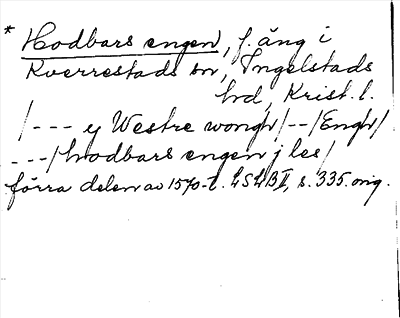 * Hodbars engen, f. äng i
Kverrestads sn, Ingelstads
hd, Krist. l.
/--- y Westre wongh/--/Engh/
---/hodbars engen j les/
förra delen av 1570-t. LSLB II, s. 335. orig.